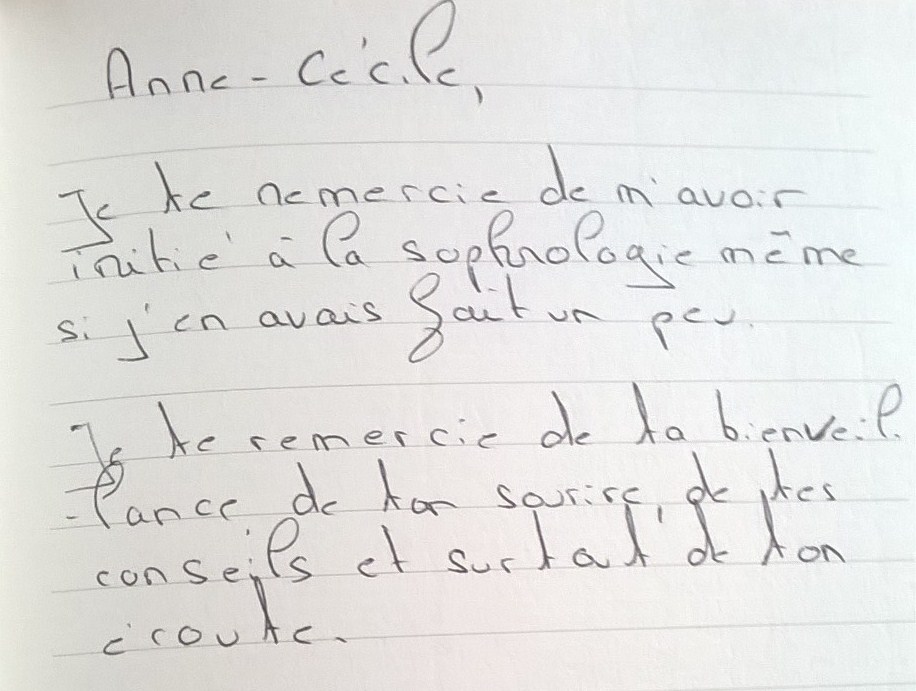 Anne-Cécile,
Je te remercie de m'avoir
initié à la sophrologie même
si j'en avais fait un peu.
Je te remercie de ta bienveil-
-lance, de ton sourire, de tes
conseils et surtout de ton
écoute.